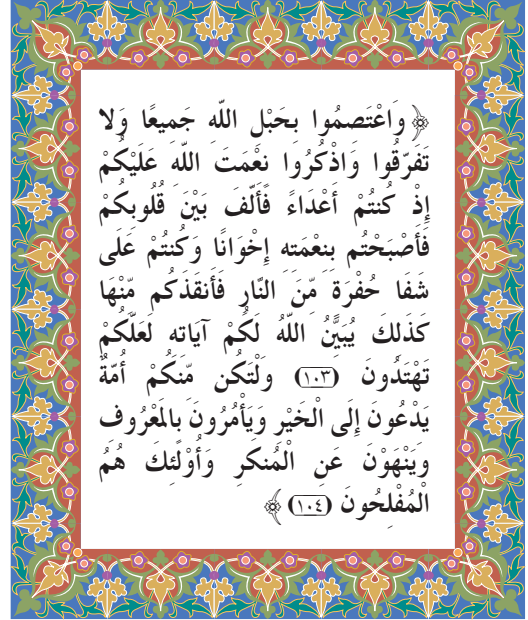 ﴿وَاعْتَصِمُوا بِحَبْلِ اللَّهِ جَمِيعًا وَلا
تَفَرَّقُوا وَاذْكُرُوا نِعْمَتَ اللَّهِ عَلَيْكُمْ
إِذْ كُنتُمْ أَعْدَاءً فَأَلَّفَ بَيْنَ قُلُوبِكُمْ
فَأَصْبَحْتُم بِنِعْمَتِهِ إِخْوَانًا وَكُنتُمْ عَلَى
شَفَا حُفْرَةٍ مِّنَ النَّارِ فَأَنقَذَكُم مِّنْهَا
كَذَلِكَ يُبَيِّنُ اللَّهُ لَكُمْ آيَاتِهِ لَعَلَّكُمْ
تَهْتَدُونَ (١٠٣) وَلْتَكُن مِّنكُمْ أُمَّةٌ
يَدْعُونَ إِلَى الْخَيْرِ وَيَأْمُرُونَ بِالْمَعْرُوفِ
وَيَنْهَوْنَ عَنِ الْمُنكَرِ وَأُوْلَئِكَ هُمُ
الْمُفْلِحُونَ (١٠٤)﴾